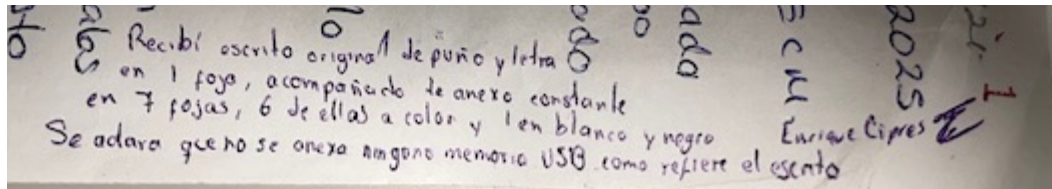 Recibí escrito original de puño y letra
en 1 foja, acompañado de anexo constante
en 7 fojas, 6 de ellas a color y 1 en blanco y negro
Enrique Cipres
Se aclara que no se anexa ninguna memoria USB como refiere el escrito
2025